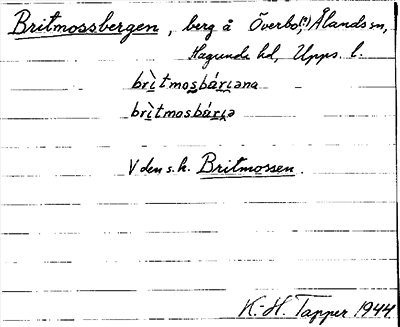 Britmossbergen, berg å Överbo,(?) Ålands sn,
Hagunda hd, Upps. l.
brìtmosbáriana
brìtmosbáriə
V den s.k. Britmossen.
K.-H. Tapper 1944.